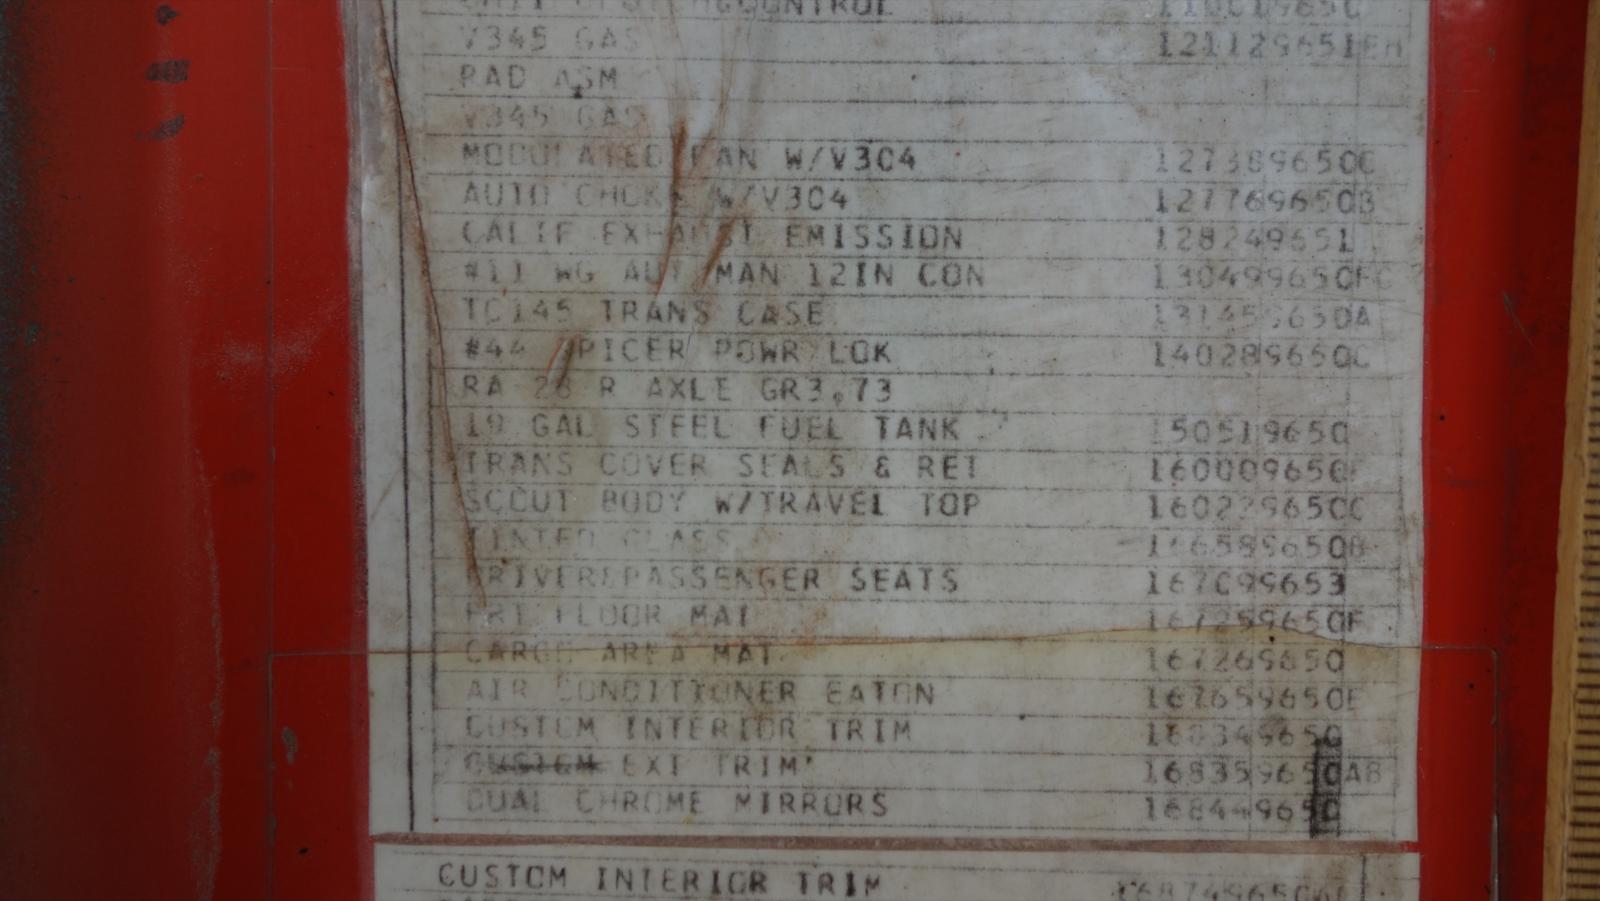 V345 GAS 121129651EH
RAD ASM
V345 GAS
MODULATED FAN W/V304 127389650C
AUTO CHOKE W/V304 127769650B
CALIF EXHAUST EMISSION 128249651
#11 WG AUT MAN 12IN CON 130499650FC
TC145 TRANS CASE 131459650A
#44 SPICER POWR LOK 140289650C
RA 28 R AXLE GR3.73
19 GAL STEEL FUEL TANK 150519650
TRANS COVER SEALS & RET 160009650
SCOUT BODY W/TRAVEL TOP 160229650C
TINTED GLASS 166589650B
DRIVER&PASSENGER SEATS 167099653
FRT FLOOR MAT 167259650F
CARGO AREA MAT 167269650
AIR CONDITIONER EATON 167659650E
CUSTOM INTERIOR TRIM 168349650
CUSTOM EXT TRIM 168359650AB
DUAL CHROME MIRRORS 168449650
CUSTOM INTERIOR TRIM